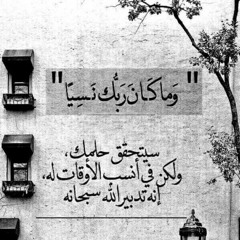 " وَمَا كَانَ رَبُّكَ نَسِيًّا "
سيتحقق حلمك،
ولكن في أنسب الأوقات له،
إنه تدبير الله سبحانه